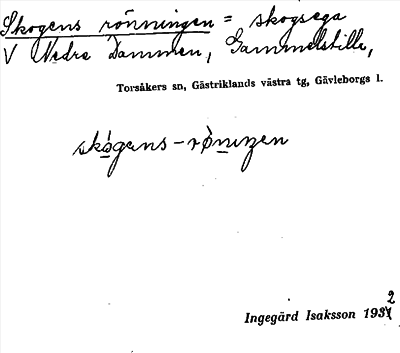 Skogens rönningen = skogsega
V Nedre Dammen, Gammelstilla,
Torsåkers sn, Gästriklands västra tg, Gävleborgs l.
skógens-rǿnıŋen
Ingegärd Isaksson 1932